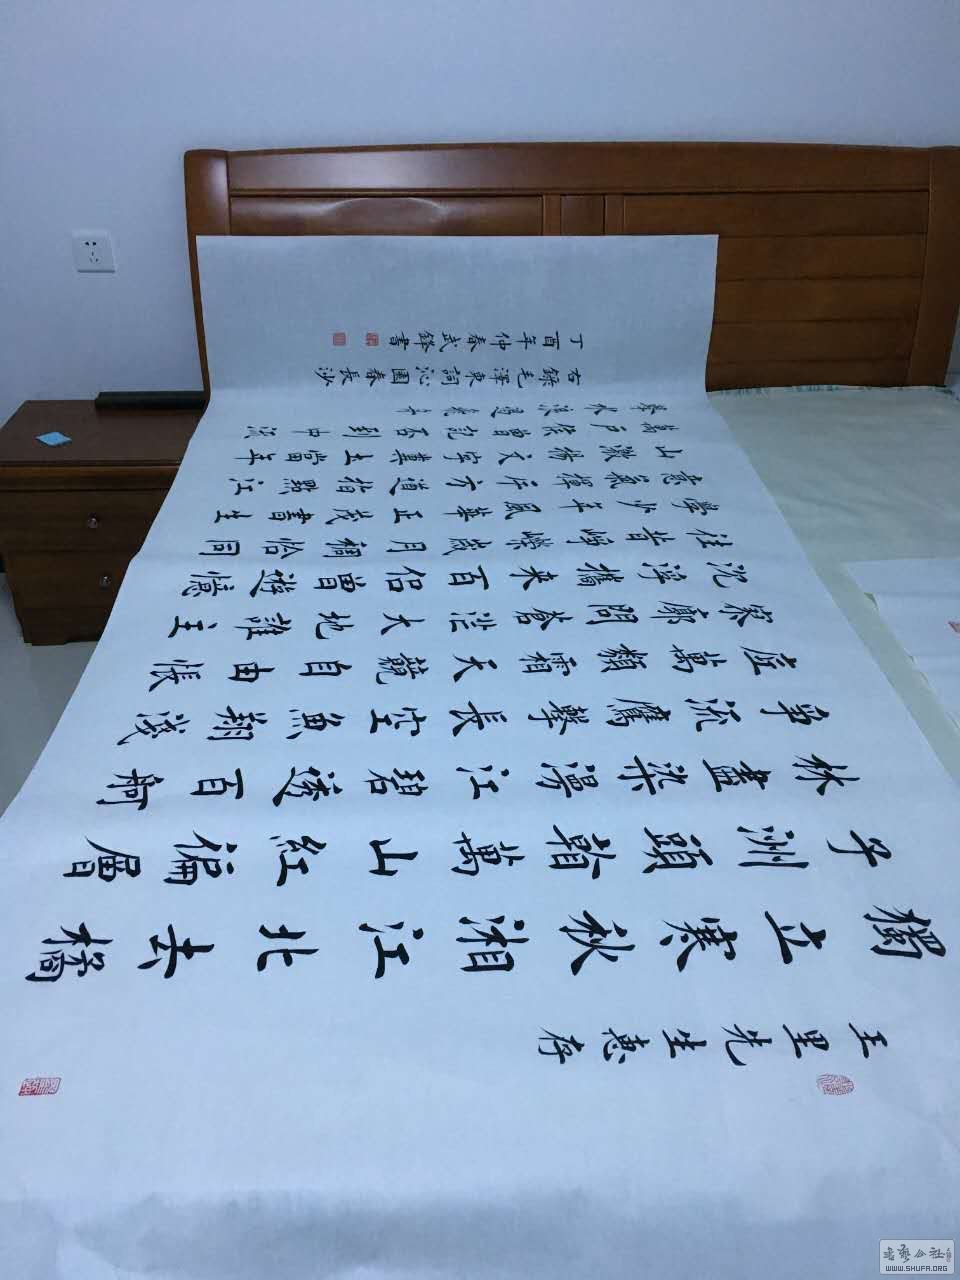 王里先生惠存
獨立寒秋湘江北去橘
子洲頭看萬山紅遍層
林盡染漫江碧透百舸
爭流鷹擊長空魚翔淺
底萬類霜天競自由悵
寥廓問蒼茫大地誰主
沉浮攜來百侶曾遊憶
往昔崢嶸歲月稠恰同
學少年風華正茂書生
意氣揮斥方遒指點江
山激揚文字糞土當年
萬戶侯曾記否到中流
擊水浪遏飛舟
右錄毛澤東詞沁園春長沙
丁酉年仲春武鋒書
书艺公社
WWW.SHUFA.ORG